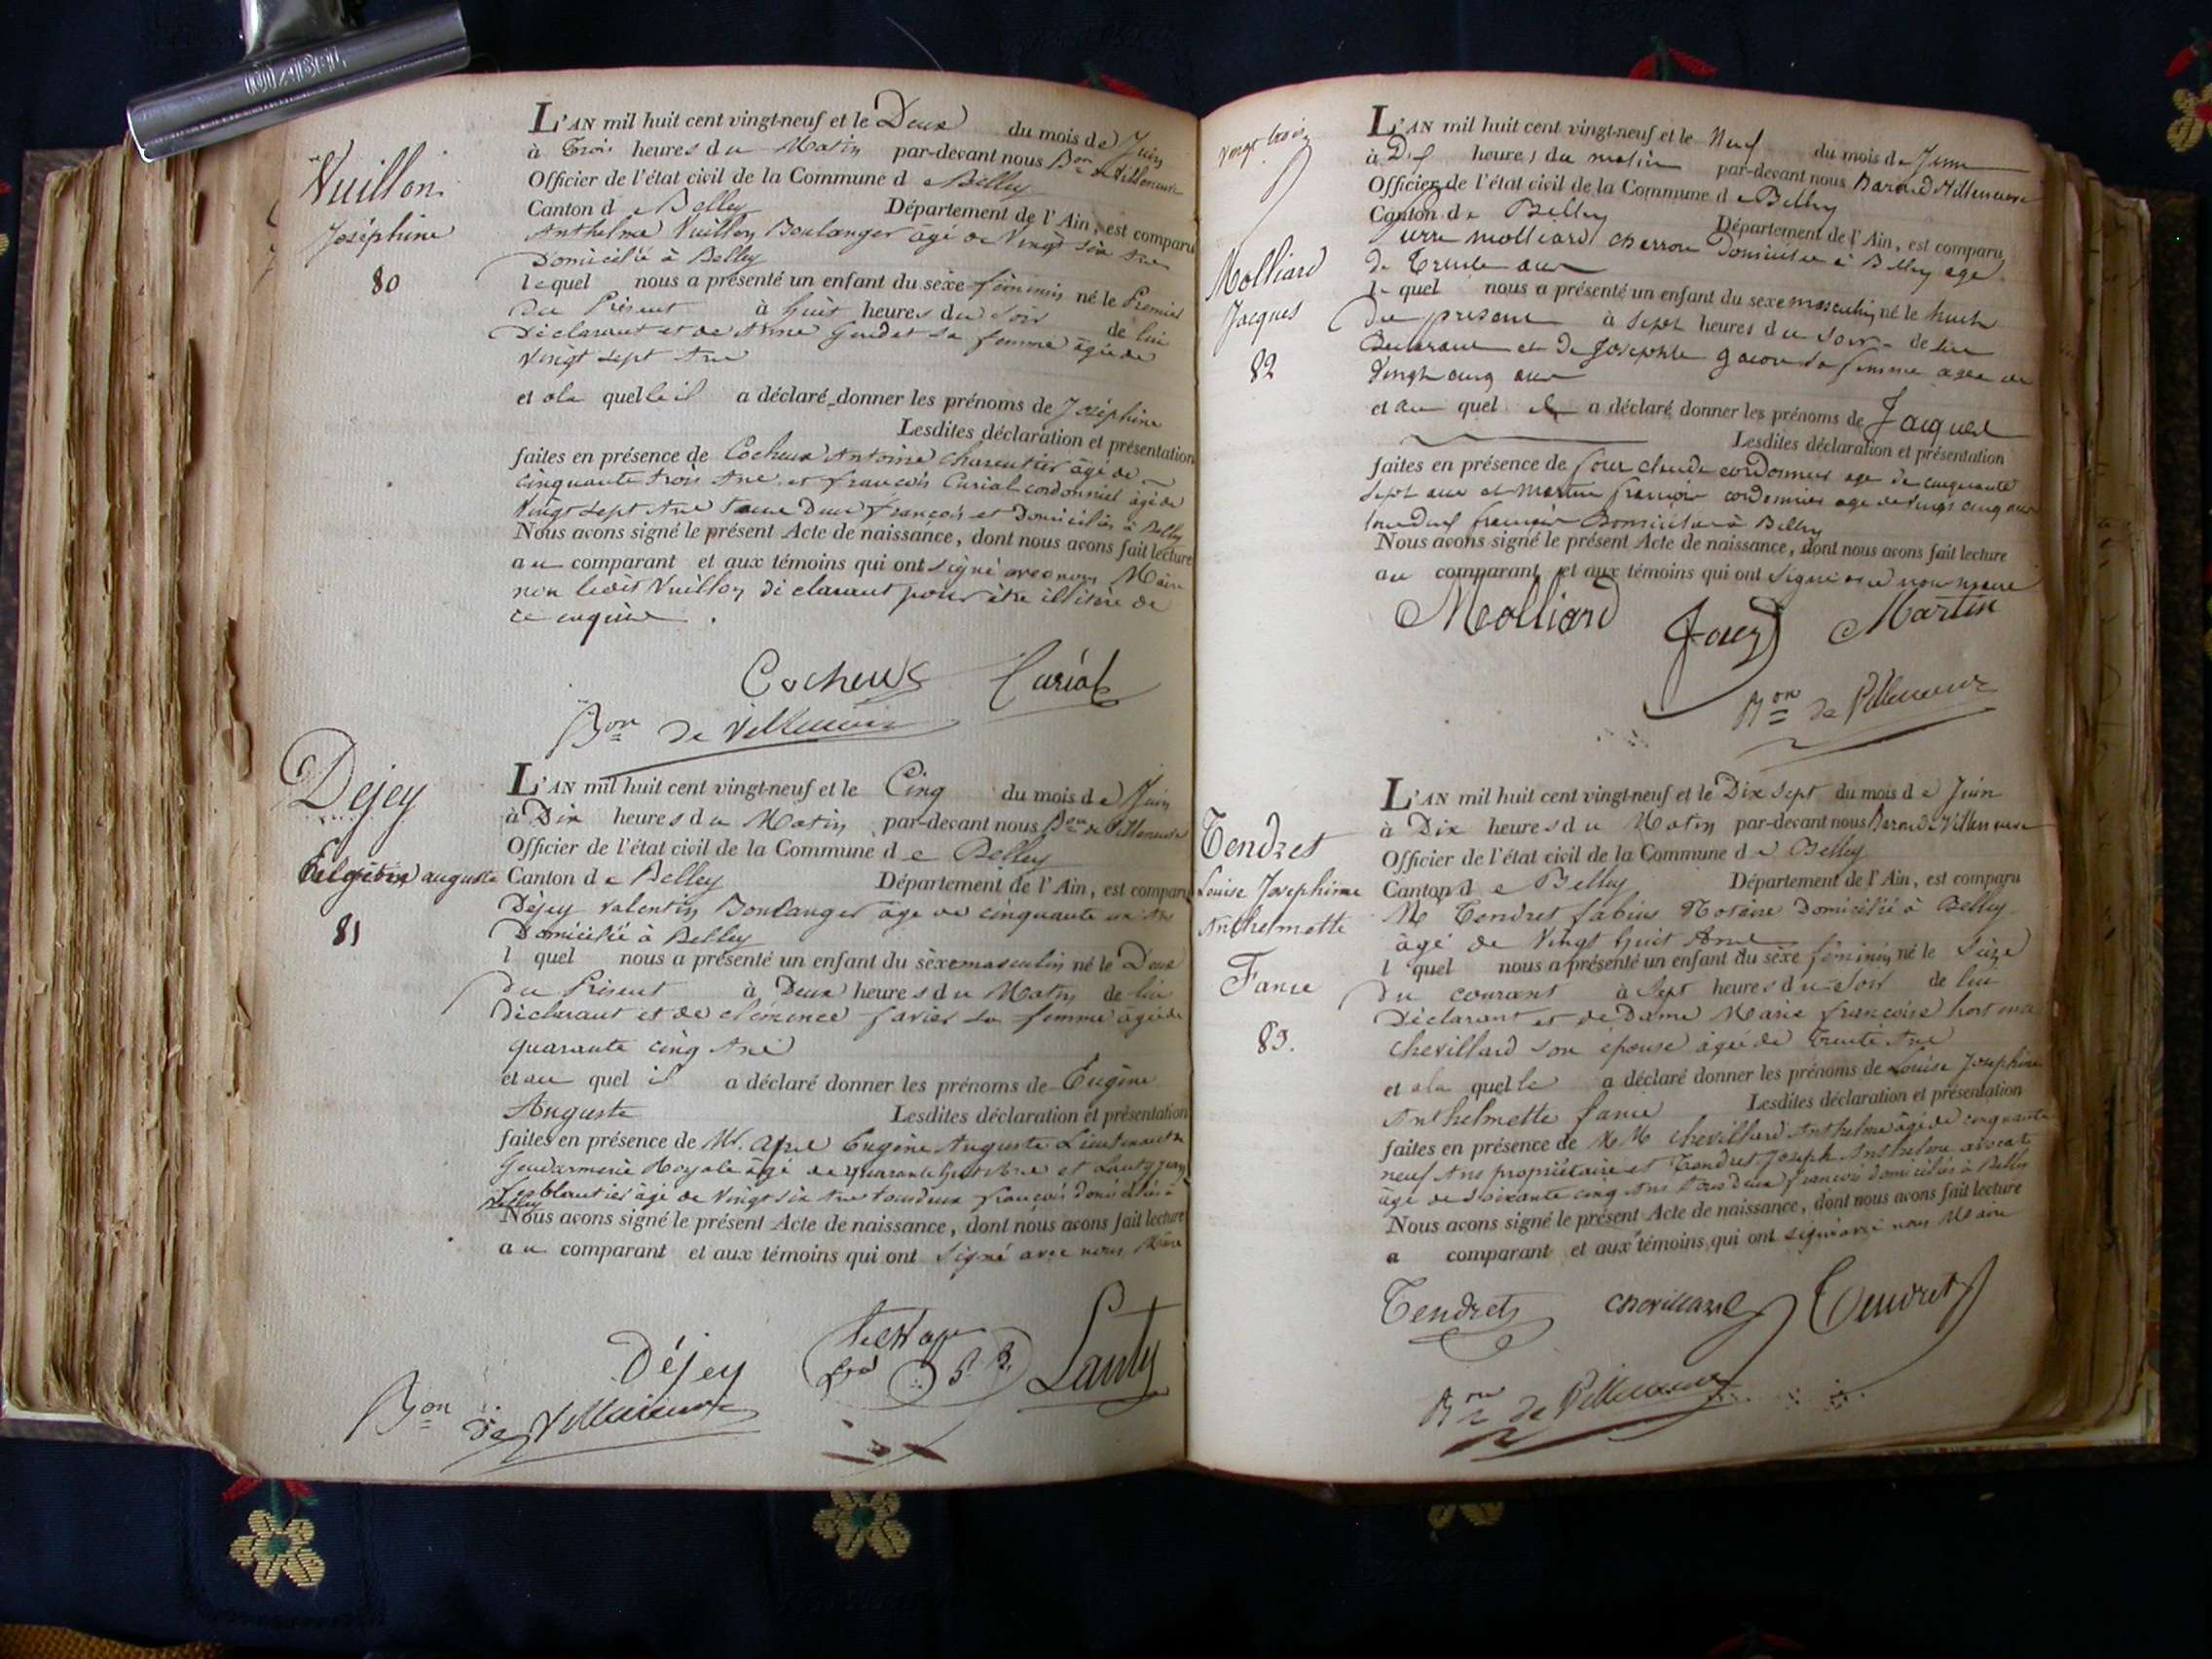 Vuillon
Joséphine
80
L'AN mil huit cent vingt-neuf et le Deux du mois de Juin
à Trois heures du Matin par-devant nous Bon de Villeneuve
Officier de l'état civil de la Commune de Belley
Canton de Belley Département de l'Ain, est comparu
Anthelme Vuillon Boulanger âgé de Vingt six Ans
Domicilié à Belley
lequel nous a présenté un enfant du sèxe féminin né le Premier
du Présent à huit heures du Soir de lui
Déclarant et de Anne Gudet sa femme âgée de
Vingt sept Ans
et a la quelle il a déclaré donner les prénoms de Joséphine
Lesdites déclaration et présentation
faites en présence de Cocheux Antoine Charcutier âgé de
cinquante trois Ans et francois Curial cordonnier âgé de
Vingt sept Ans Tous Deux francois et Domiciliés à Belley
Nous avons signé le présent Acte de naissance, dont nous avons fait lecture
au comparant et aux témoins qui ont signé avec nous Maire
non ledit Vuillon déclarant pour être illitéré de
ce enquis .
Cocheux Curial
Bon de Villeneuve
Dejey
auguste
81
L'AN mil huit cent vingt-neuf et le Cinq du mois de Juin
à Dix heures du Matin par-devant nous Bon de Villeneuve
Officier de l'état civil de la Commune de Belley
Canton de Belley Département de l'Ain, est comparu
Dejey Valentin Boulanger âgé de cinquante un Ans
Domicilié à Belley
l quel nous a présenté un enfant du sèxe masculin né le Deux
du Présent à Deux heures du Matin de lui
Déclarant et de clémence favier sa femme âgée de
quarante cinq Ans
et au quel il a déclaré donner les prénoms de Eugène
Auguste Lesdites déclaration et présentation
faites en présence de Mr. Eugène Auguste Lieutenant de
Gendarmerie Royale âgé de quarante huit Ans et Lauty Jean
ferblantier âgé de Vingt six Ans tous deux francois domiciliés à
Belley
Nous avons signé le présent Acte de naissance, dont nous avons fait lecture
au comparant et aux témoins qui ont Signé avec nous Maire
Déjey Lauty
Bon de Villeneuve
vingt trois
Molliard
Jacques
82
L'AN mil huit cent vingt-neuf et le Neuf du mois de Juin
à Dix heures du matin par-devant nous Baron de Villeneuve
Officier de l'état civil de la Commune de Belley
Canton de Belley Département de l'Ain, est comparu
Pierre Molliard charron Domicilié à Belley agé
de Trente ans
le quel nous a présenté un enfant du sexe masculin né le huit
du présent à sept heures du Soir de lui
Declarant et de Josephte gacon sa femme agée de
Vingt cinq ans
et au quel il a déclaré donner les prénoms de Jacques
Lesdites déclaration et présentation
faites en présence de four claude cordonnier agé de cinquante
sept ans et Martin françois cordonnier agé de vingt cinq ans
tous deux français Domiciliés à Belley
Nous avons signé le présent Acte de naissance, dont nous avons fait lecture
au comparant et aux témoins qui ont Signé avec nous maire
Molliard four Martin
Bon de Villeneuve
Tendret
Louise Josephine
Anthelmette
Fanie
83.
L'AN mil huit cent vingt-neuf et le Dix Sept du mois de Juin
à Dix heures du Matin par-devant nous Baron de Villeneuve
Officier de l'état civil de la Commune de Belley
Canton de Belley Département de l'Ain, est comparu
Me Tendret fabius Notaire Domicilié à Belley
âgé de Vingt huit Ans
l quel nous a présenté un enfant du sèxe féminin né le Seize
du courant à Sept heures du Soir de lui
Déclarant et de Dame Marie francoise hortence
Chevillard son épouse âgée de Trente Ans
et a la quelle a déclaré donner les prénoms de Louise Josephine
Anthelmette fanie Lesdites déclaration et présentation
faites en présence de MM Chevillard Anthelme âgé de cinquante
neuf Ans propriétaire et Tendret Joseph Anthelme avocat
âgé de soixante cinq Ans tous deux francois domiciliés à Belley
Nous avons signé le présent Acte de naissance, dont nous avons fait lecture
a comparant et aux témoins qui ont signé avec nous Maire
Tendret Chevillard Tendret
Bon de Villeneuve